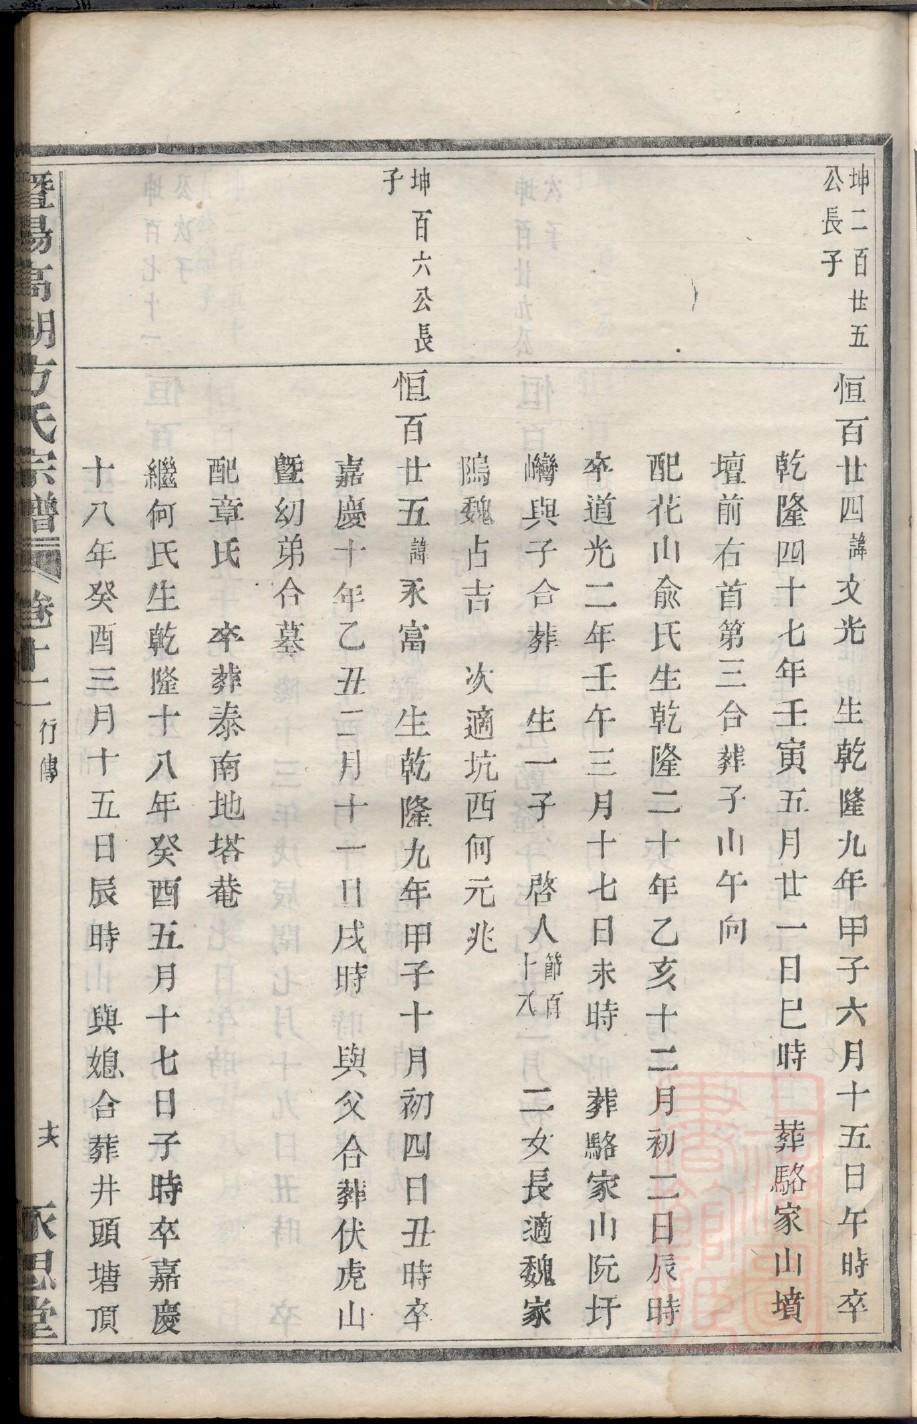 坤二百廿五
公長子
恒百廿四諱文光　生乾隆九年甲子六月十五日午時卒
乾隆四十七年壬寅五月廿一日巳時　葬駱家山墳
壇前右首第三合葬子山午向
配花山俞氏生乾隆二十年乙亥十二月初二日辰時
卒道光二年壬午三月十七日未時　葬駱家山阮圩
巒與子合葬　生一子　啓人節百十八　二女長適魏家
隖魏占吉　次適坑西何元兆
坤百六公長
子
恒百廿五諱永富　生乾隆九年甲子十月初四日丑時卒
嘉慶十年乙丑二月十一日戌時　與父合葬伏虎山
曁幼弟合墓
配章氏　卒葬泰南地塔菴
繼何氏生乾隆十八年癸酉五月十七日子時卒嘉慶
十八年癸酉三月十五日辰時　與媳合葬井頭塘頂
暨陽高湖方氏宗譜　卷十二　行傳　永思堂